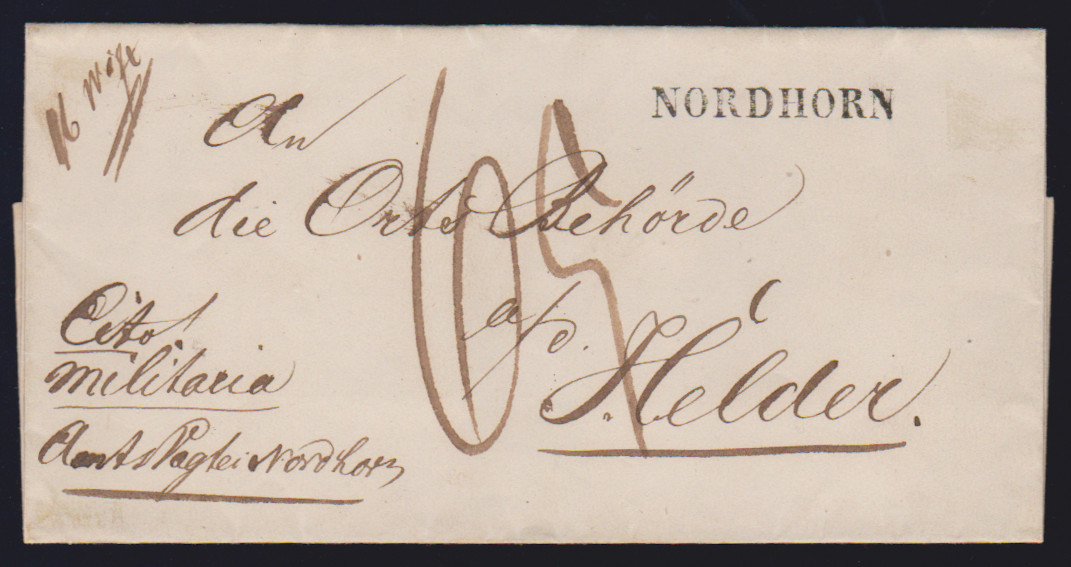 NORDHORN
An
die Orts Behörde
a/d.
Helder.
Cito!
militaria
Amts Vogtei Nordhorn
65